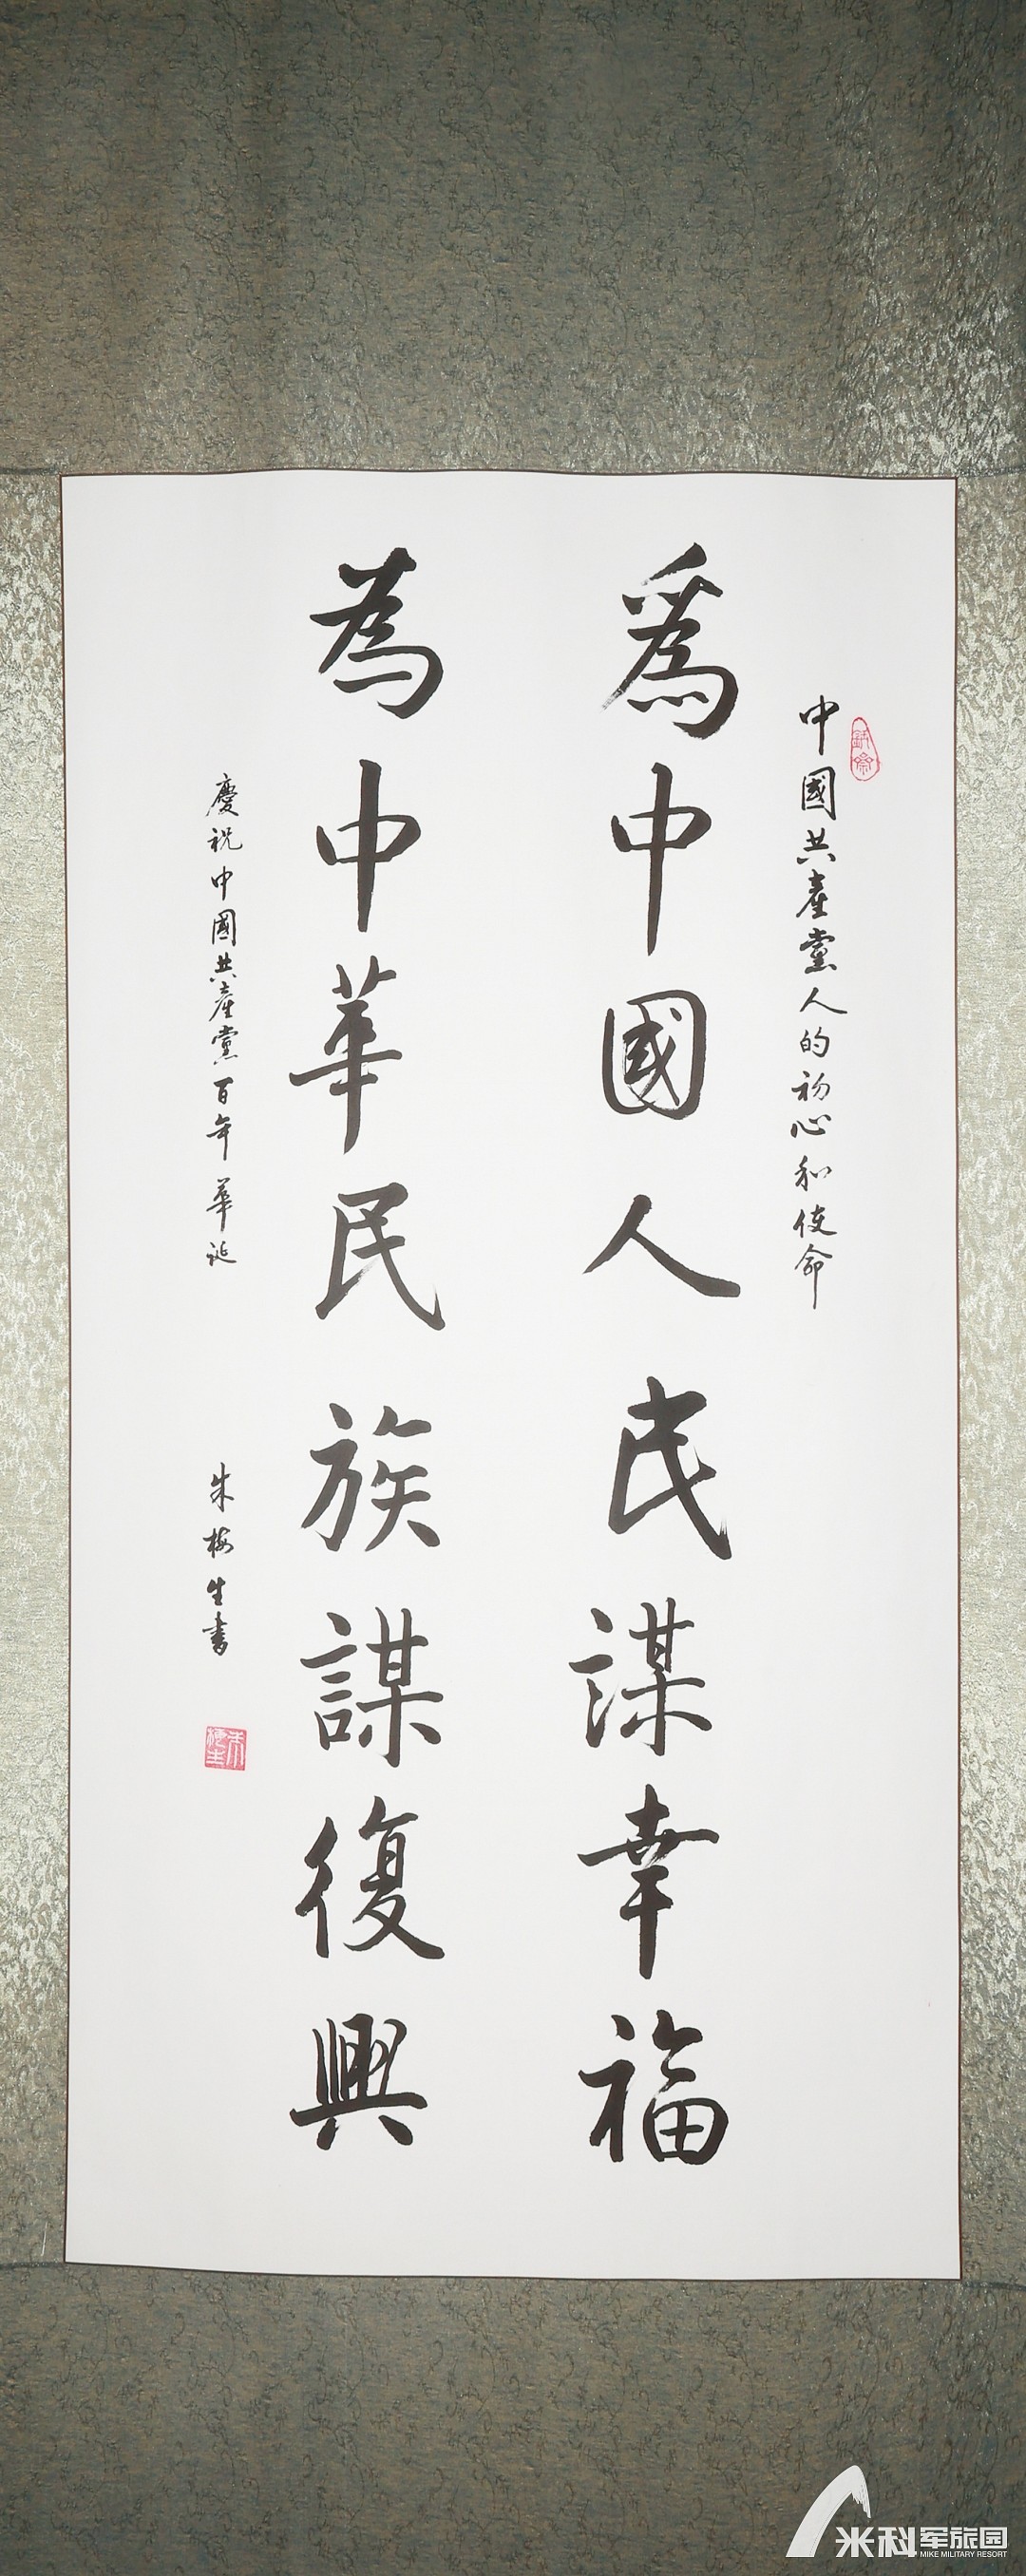 中國共產黨人的初心和使命
爲中國人民謀幸福
為中華民族謀復興
慶祝中國共產黨百年華誕
朱梅生書
朱梅生
米科军旅园
MIKE MILITARY RESORT